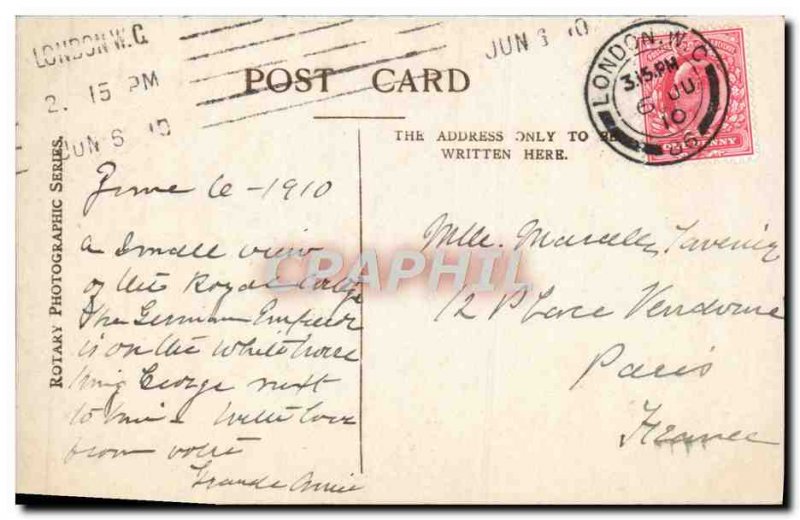 LONDON W.C.
2. 15 PM
JUN 6 10
JUN 6 10
LONDON. W.C
3.15.PM
6 JU
10
ONE PENNY
POST CARD
THE ADDRESS ONLY TO BE
WRITTEN HERE.
ROTARY PHOTOGRAPHIC SERIES.
June 6 - 1910
a small view
of the Royal
the German Emperor
is on the White horse
King George next
to him - With love
from votre
Annie
Mlle.
12 Place Vendome
Paris
France
CPARPHIL